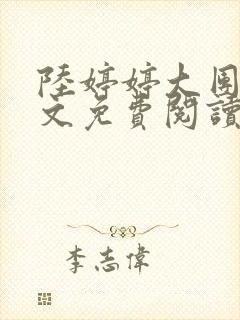 陸婷婷大周
文免費閱讀
李志偉